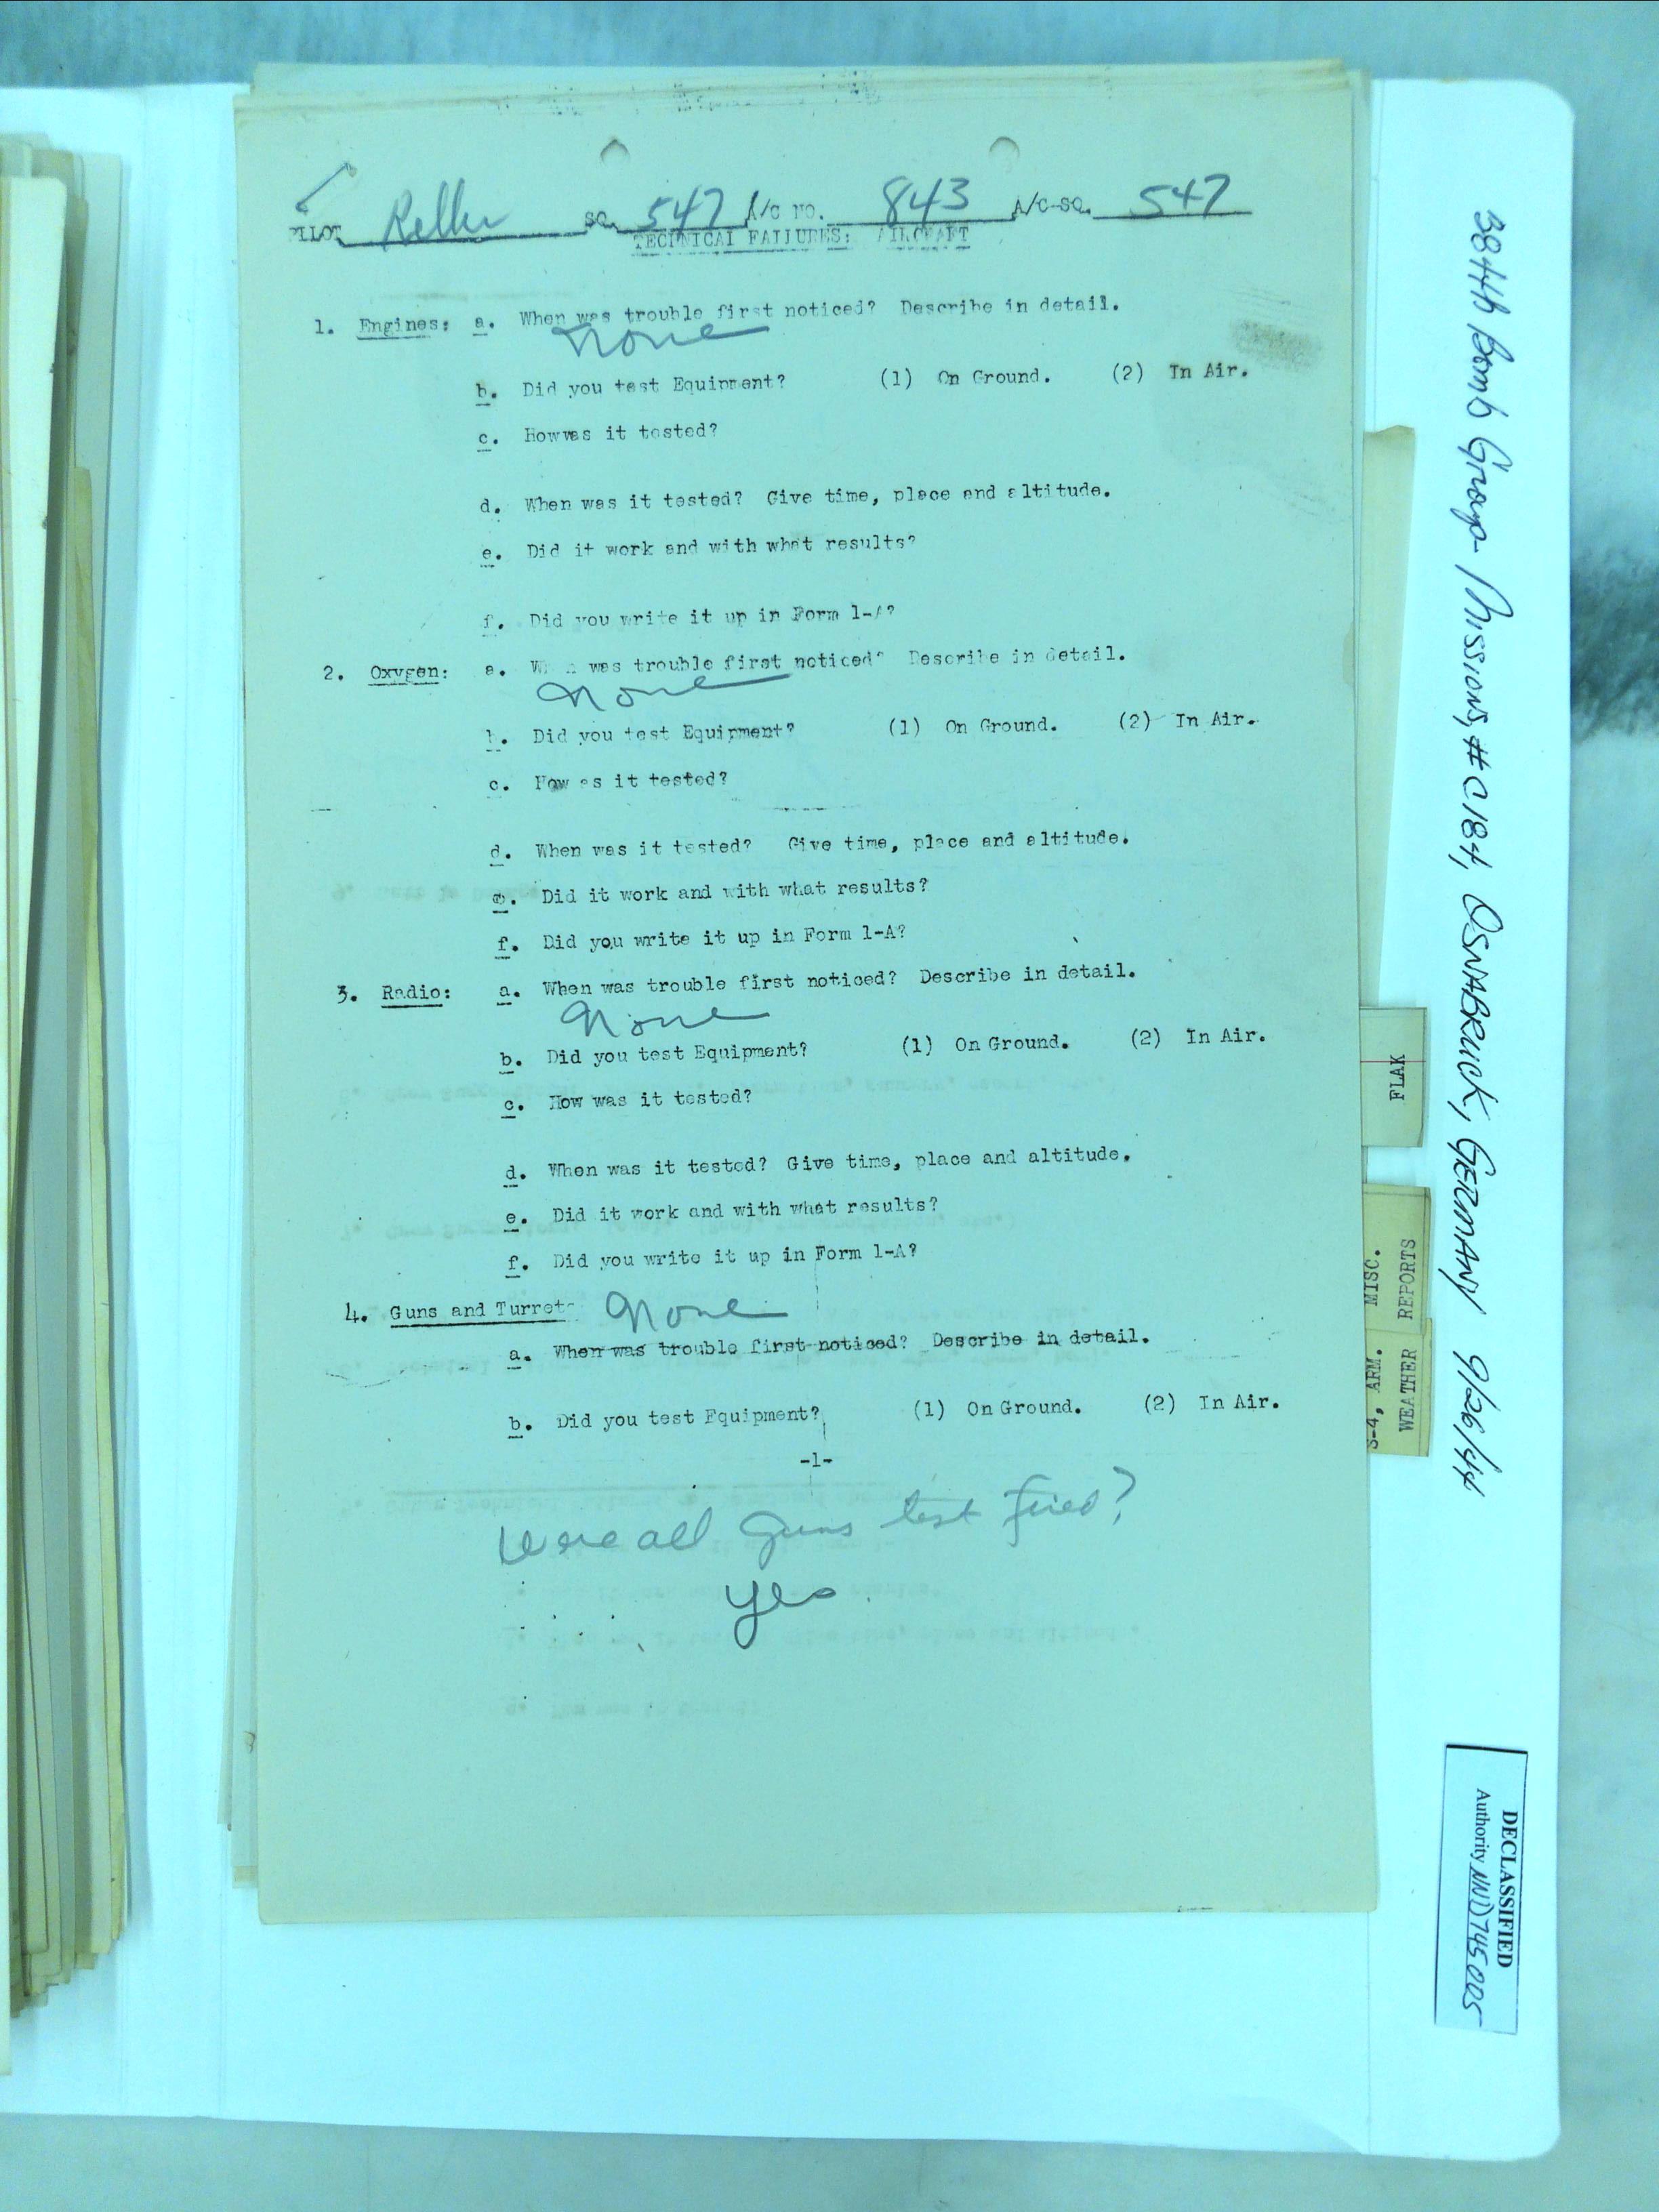 PILOT Keller SQ. 547 A/C NO. 843 A/C SQ. 547
TECHNICAL FAILURES: AIRCRAFT
1. Engines: a. When was trouble first noticed? Describe in detail.
none
b. Did you test Equipment? (1) On Ground. (2) In Air.
c. How was it tested?
d. When was it tested? Give time, place and altitude.
e. Did it work and with what results?
f. Did you write it up in Form 1-A?
2. Oxygen: a. When was trouble first noticed? Describe in detail.
none
b. Did you test Equipment? (1) On Ground. (2) In Air.
c. How was it tested?
d. When was it tested? Give time, place and altitude.
e. Did it work and with what results?
f. Did you write it up in Form 1-A?
3. Radio: a. When was trouble first noticed? Describe in detail.
None
b. Did you test Equipment? (1) On Ground. (2) In Air.
c. How was it tested?
d. When was it tested? Give time, place and altitude.
e. Did it work and with what results?
f. Did you write it up in Form 1-A?
4. Guns and Turret None
a. When was trouble first noticed? Describe in detail.
b. Did you test Equipment? (1) On Ground. (2) In Air.
-1-
Were all guns test fired?
yes
FLAK
MISC. REPORTS
S-4, ARM.
WEATHER
384th Bomb Group Missions, #C184, OSNABRUCK, GERMANY 9/26/44
DECLASSIFIED
Authority NND745005